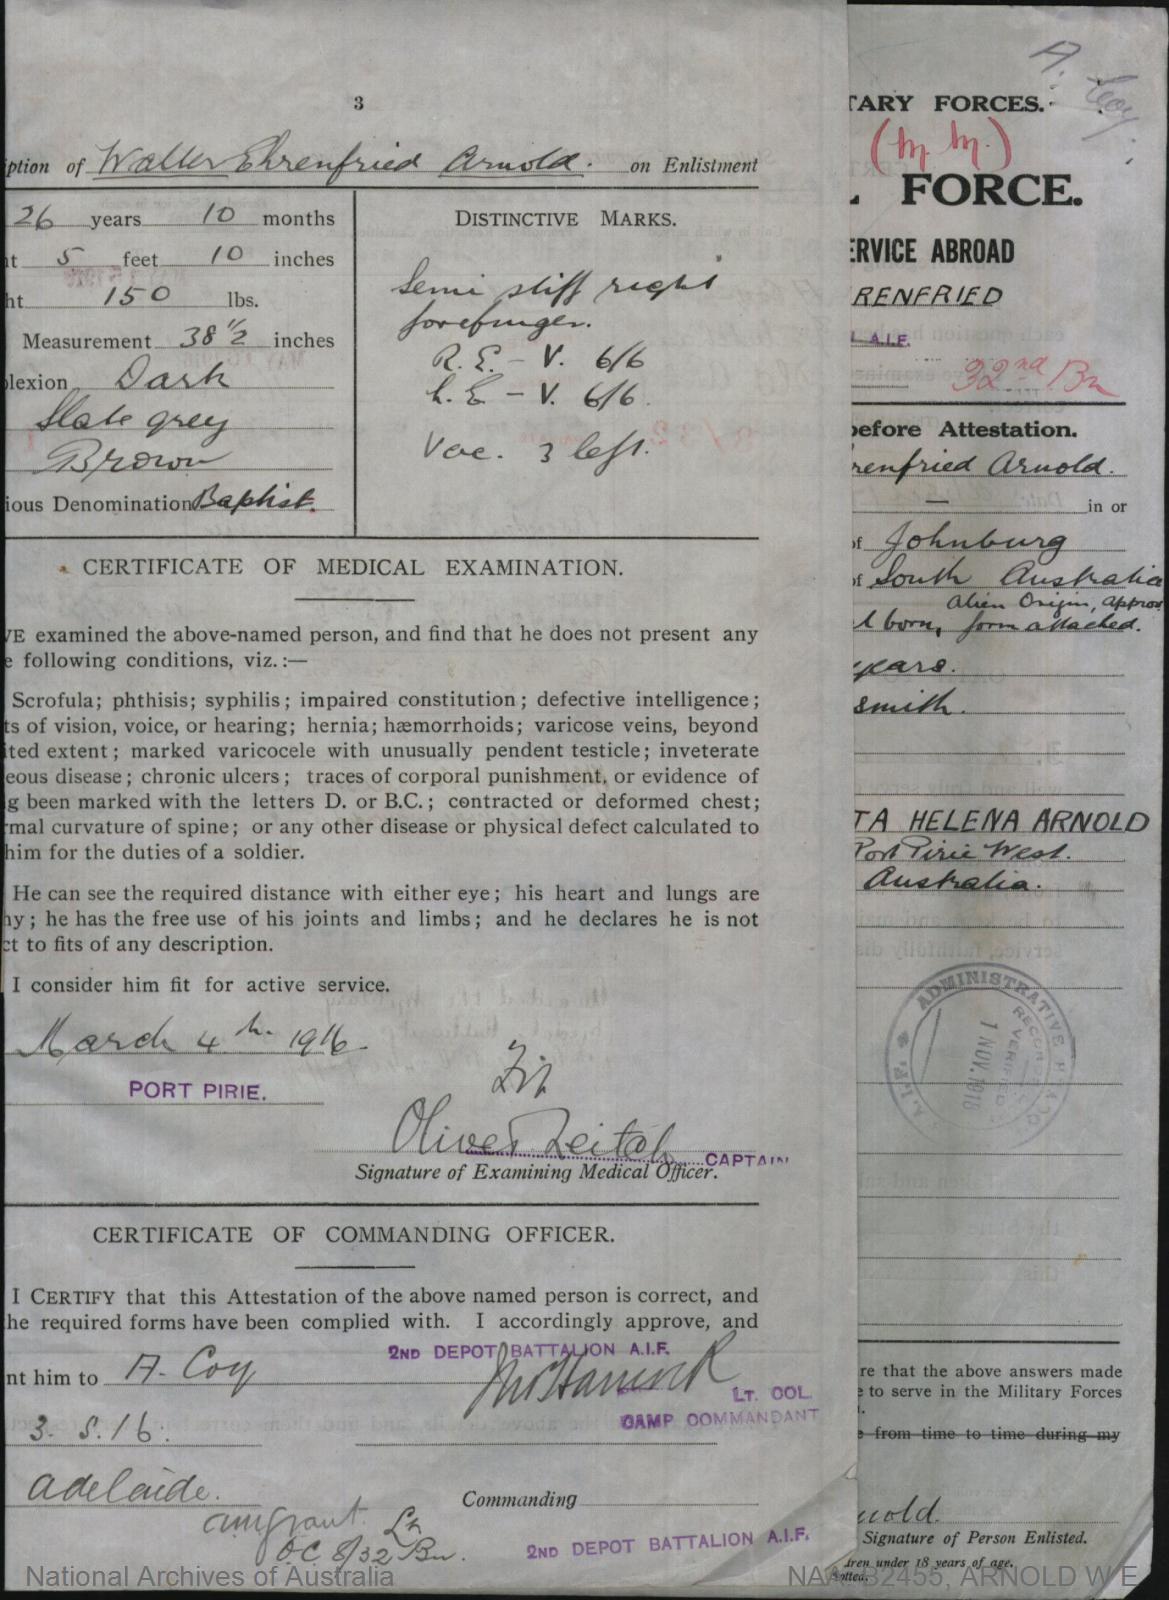 3
ption of Walter Ehrenfried Arnold. on Enlistment
26 years 10 months
t 5 feet 10 inches
ht 150 lbs.
Measurement 38 1/2 inches
lexion Dark
Slate grey
Brown
ious Denomination Baptist.
DISTINCTIVE MARKS.
Semi stiff right
forefinger.
R.E. - V. 6/6
L.E. - V. 6/6.
Vac. 3 left.
CERTIFICATE OF MEDICAL EXAMINATION.
VE examined the above-named person, and find that he does not present any
e following conditions, viz.:—
Scrofula; phthisis; syphilis; impaired constitution; defective intelligence;
ts of vision, voice, or hearing; hernia; hæmorrhoids; varicose veins, beyond
ited extent; marked varicocele with unusually pendent testicle; inveterate
eous disease; chronic ulcers; traces of corporal punishment, or evidence of
g been marked with the letters D. or B.C.; contracted or deformed chest;
rmal curvature of spine; or any other disease or physical defect calculated to
him for the duties of a soldier.
He can see the required distance with either eye; his heart and lungs are
hy; he has the free use of his joints and limbs; and he declares he is not
ct to fits of any description.
I consider him fit for active service.
March 4th. 1916.
PORT PIRIE.
Fit
Oliver Leitch CAPTAIN
Signature of Examining Medical Officer.
CERTIFICATE OF COMMANDING OFFICER.
I CERTIFY that this Attestation of the above named person is correct, and
he required forms have been complied with. I accordingly approve, and
2ND DEPOT BATTALION A.I.F.
nt him to A. Coy
LT. COL.
CAMP COMMANDANT
3.5.16.
Adelaide.
Commanding
Lt
O.C. 8/32 Bn.
2ND DEPOT BATTALION A.I.F.
A. Coy.
TARY FORCES.
(M M.)
L FORCE.
ERVICE ABROAD
RENFRIED
A.I.F.
32nd Bn
before Attestation.
renfried Arnold.
— in or
of Johnburg
of South Australia
Alien Origin, Approv
l born, form attached.
years.
smith.
TA HELENA ARNOLD
Port Pirie West.
Australia.
A.I.F. ADMINISTRATIVE HEADQ
RECORDS
VERIFIED
1 NOV. 1918
re that the above answers made
e to serve in the Military Forces
e from time to time during my
nold.
Signature of Person Enlisted.
dren under 18 years of age.
otted.
National Archives of Australia
NAA: B2455, ARNOLD W E